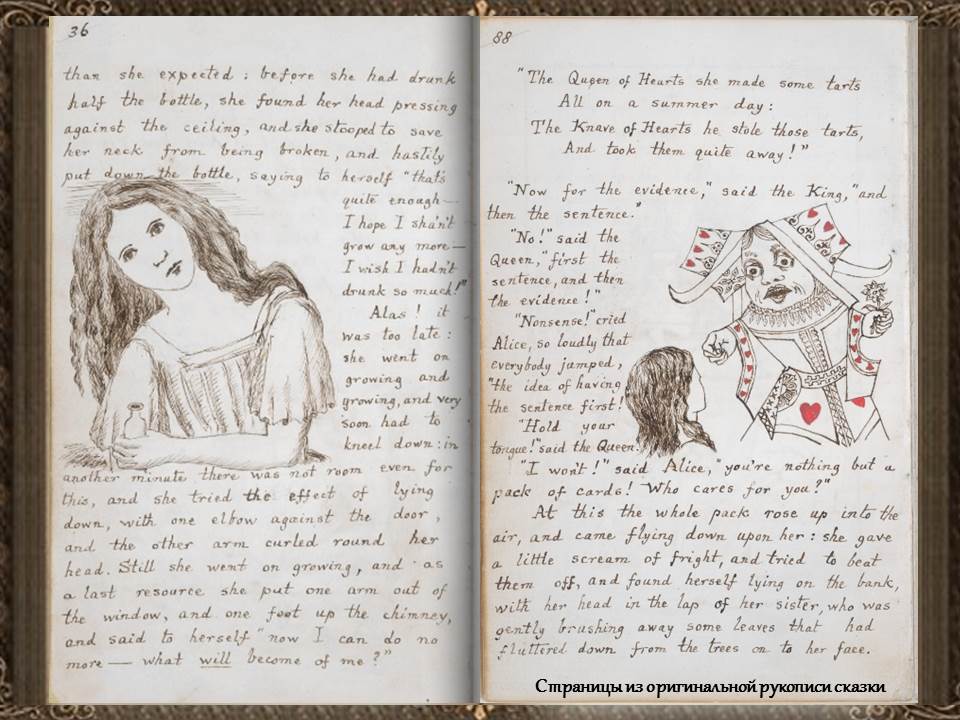 36
than she expected : before she had drunk
half the bottle, she found her head pressing
against the ceiling, and she stooped to save
her neck from being broken, and hastily
put down the bottle, saying to herself "that's
quite enough—
I hope I shan't
grow any more—
I wish I hadn't
drunk so much!"
Alas! it
was too late :
she went on
growing and
growing, and very
soon had to
kneel down : in
another minute there was not room even for
this, and she tried the effect of lying
down, with one elbow against the door,
and the other arm curled round her
head. Still she went on growing, and as
a last resource she put one arm out of
the window, and one foot up the chimney,
and said to herself "now I can do no
more — what will become of me?"
88
"The Queen of Hearts she made some tarts
All on a summer day :
The Knave of Hearts he stole those tarts,
And took them quite away!"
"Now for the evidence," said the King, "and
then the sentence."
"No!" said the
Queen, "first the
sentence, and then
the evidence!"
"Nonsense!" cried
Alice, so loudly that
everybody jumped,
"the idea of having
the sentence first!
"Hold your
tongue!" said the Queen.
"I won't!" said Alice, "you're nothing but a
pack of cards! Who cares for you?"
At this the whole pack rose up into the
air, and came flying down upon her : she gave
a little scream of fright, and tried to beat
them off, and found herself lying on the bank,
with her head in the lap of her sister, who was
gently brushing away some leaves that had
fluttered down from the trees on to her face.
Страницы из оригинальной рукописи сказки